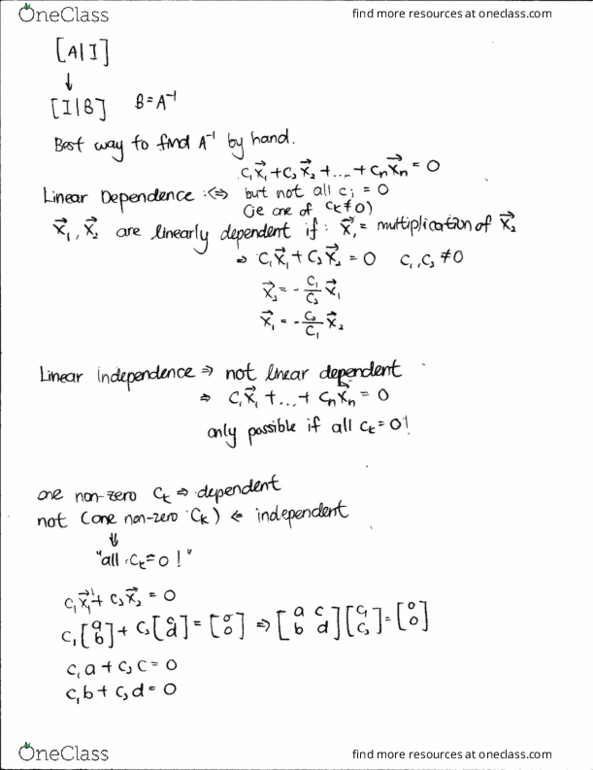 OneClass find more resources at oneclass.com
[A|I]
↓
[I|B] B=A⁻¹
Best way to find A⁻¹ by hand.
c₁x⃗₁+c₂x⃗₂+...+cₙx⃗ₙ=0
Linear Dependence :⇔ but not all cᵢ=0
(ie one of cₖ≠0)
x⃗₁, x⃗₂ are linearly dependent if: x⃗₁= multiplication of x⃗₂
⇒ c₁x⃗₁+c₂x⃗₂=0 c₁,c₂≠0
x⃗₂=-c₁/c₂ x⃗₁
x⃗₁=-c₂/c₁ x⃗₂
Linear independence ⇒ not linear dependent
⇒ c₁x⃗₁+...+cₙx⃗ₙ=0
only possible if all cₖ=0!
one non-zero cₖ ⇒ dependent
not (one non-zero cₖ) ⇐ independent
⇓
"all cₖ=0!"
c₁x⃗₁+c₂x⃗₂=0
c₁[a b]+c₂[c d]=[0 0] ⇒ [a c b d][c₁ c₂]=[0 0]
c₁a+c₂c=0
c₁b+c₂d=0
OneClass find more resources at oneclass.com